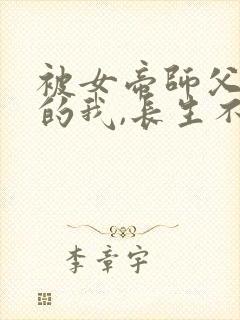 被女帝師父
的我,長生不
李章宇